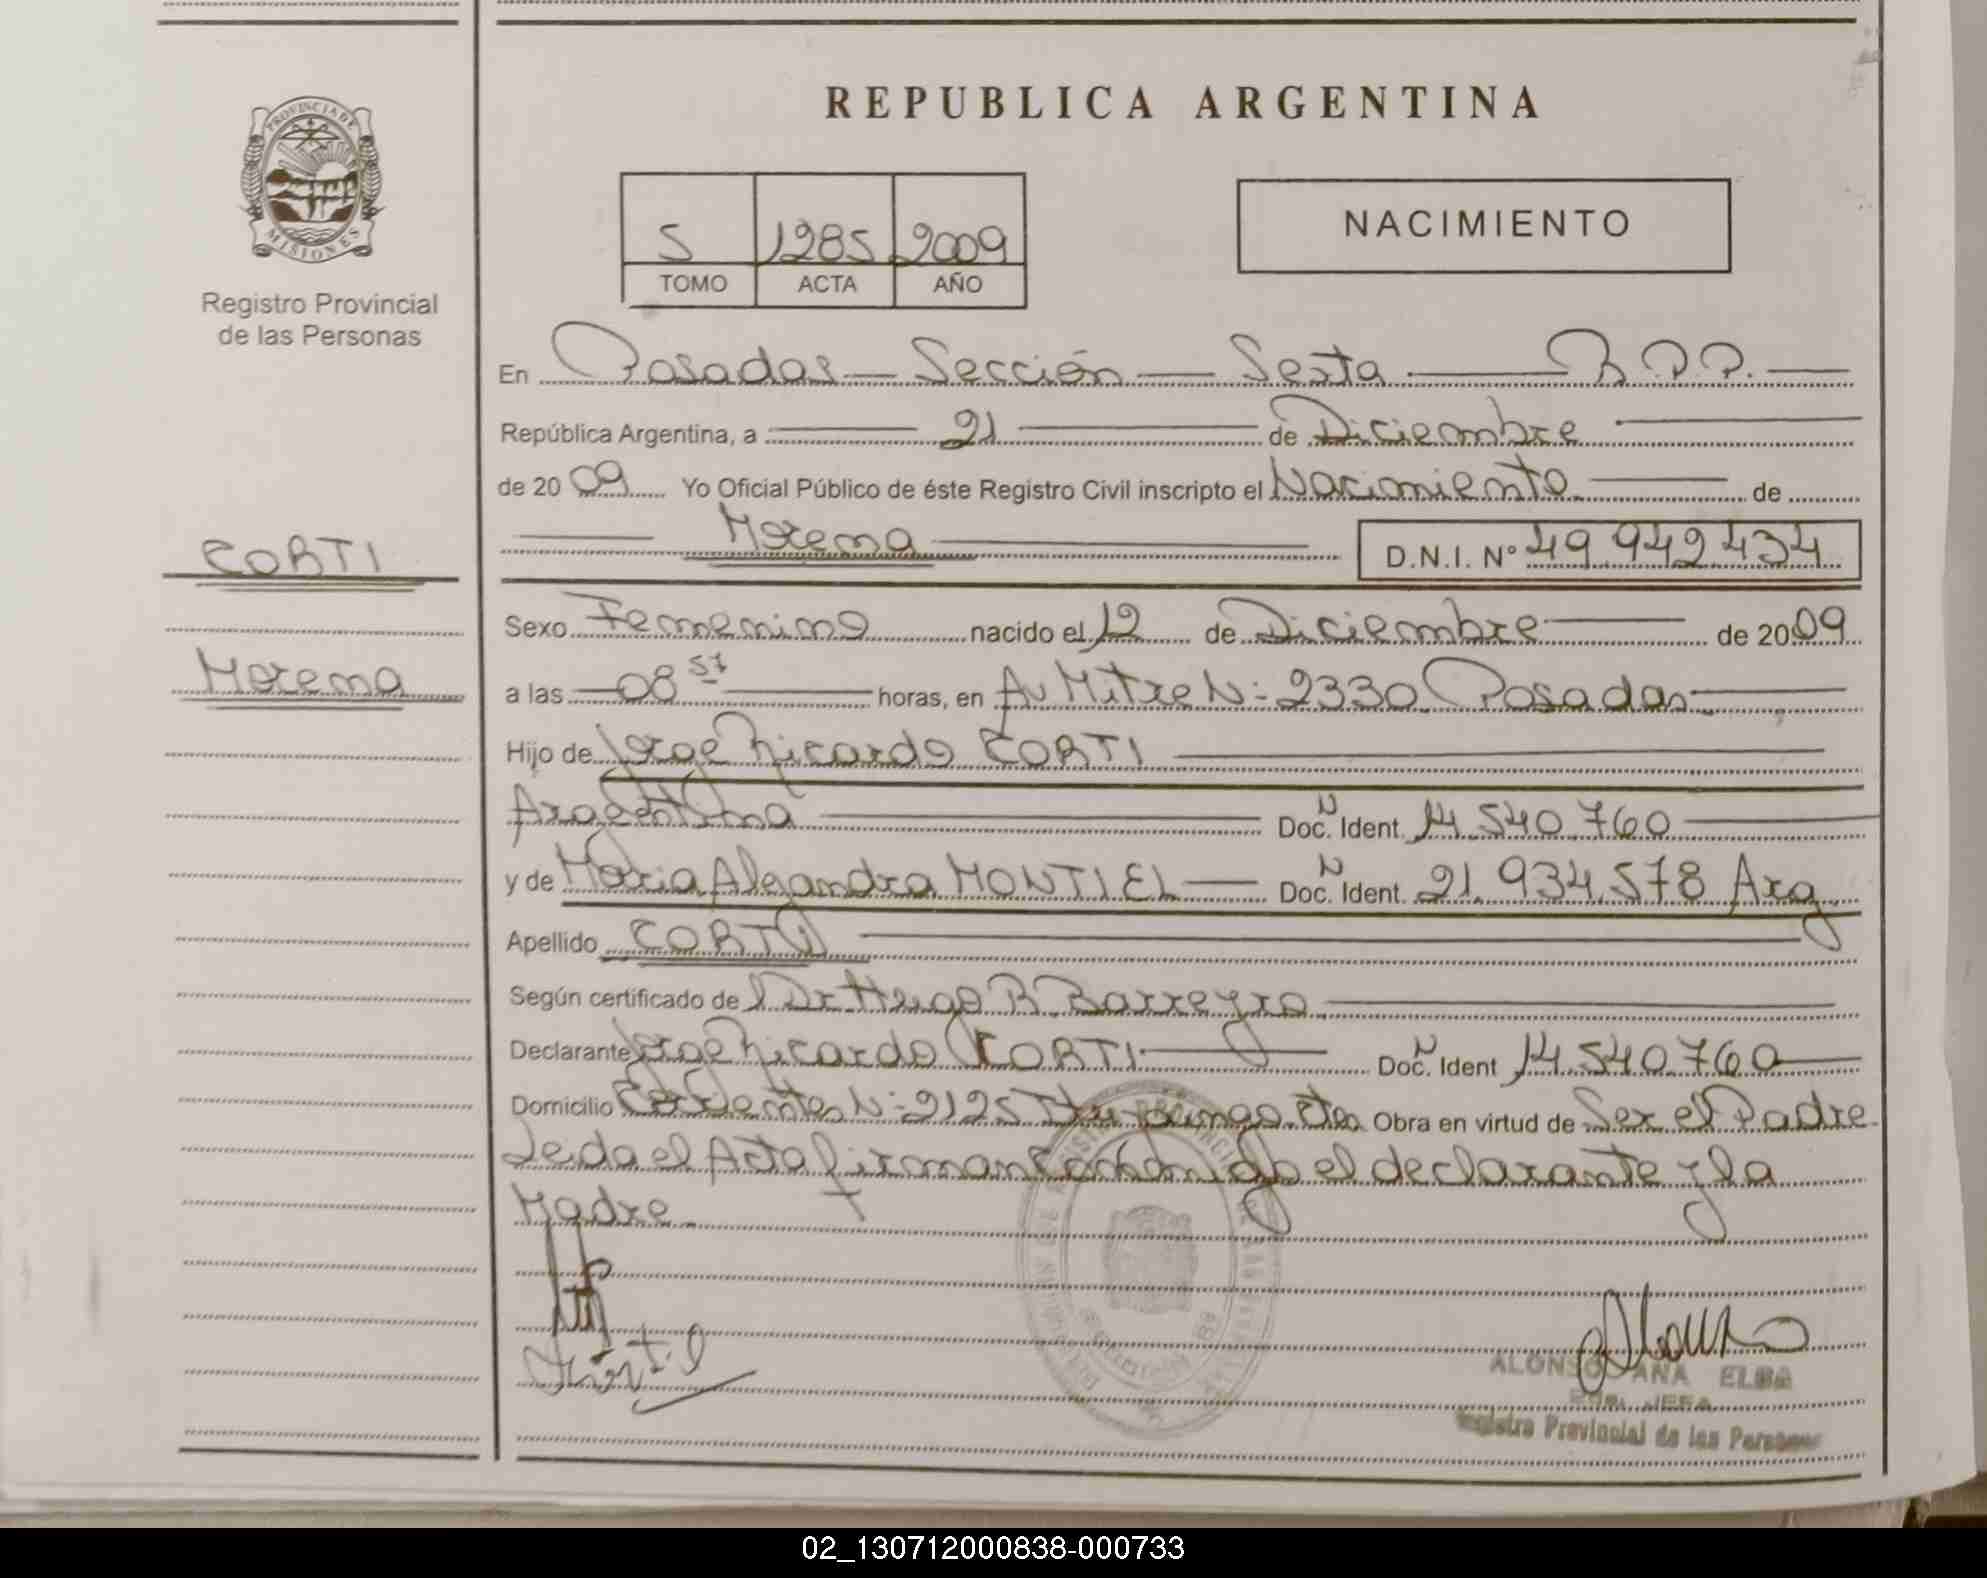 REPUBLICA ARGENTINA
PROVINCIA DE
MISIONES
Registro Provincial
de las Personas
5 1285 2009
TOMO ACTA AÑO
NACIMIENTO
En Posadas — Sección — Sexta — R.P.P. —
República Argentina, a — 21 — de Diciembre —
de 2009 Yo Oficial Público de éste Registro Civil inscripto el Nacimiento — de
— Morena — D.N.I. Nº 49.942.434
CORTI
Morena
Sexo Femenino nacido el 12 de Diciembre — de 2009
a las — 08 57 — horas, en Av Mitre N: 2330 Posadas —
Hijo de Jorge Ricardo CORTI —
Argentina — Doc. Ident. 14.540.760 —
y de Maria Alejandra MONTIEL — Doc. Ident. 21.934.578 Arg
Apellido CORTI —
Según certificado de Dr Hugo R. Barreyro —
Declarante Jorge Ricardo CORTI — Doc. Ident 14.540.760 —
Domicilio N: 2125 Obra en virtud de Ser el Padre
Leida el Acta firman el declarante y la
Madre
ALONSO ANA ELBA
Registro Provincial de las Personas
02_130712000838-000733